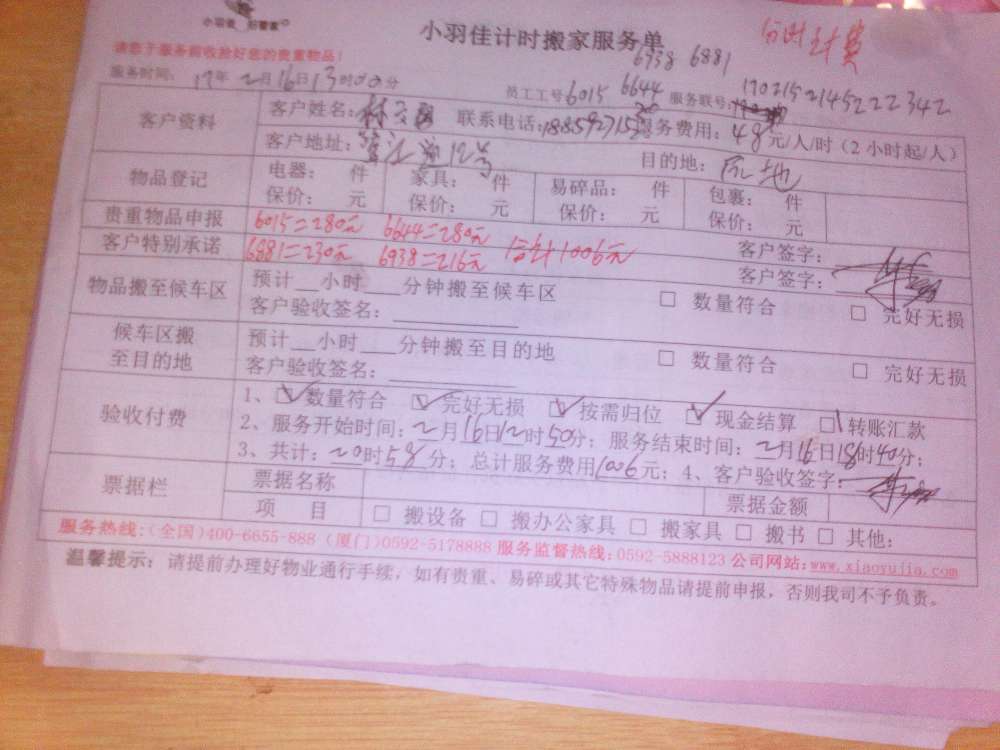 小羽佳 好管家
小羽佳计时搬家服务单
分时计费
6938 6881
请您于服务前收拾好您的贵重物品!
服务时间: 17年2月16日13时00分
员工工号6015 6644 服务联号: 1702152145222342
客户资料
客户姓名: 林 联系电话: 服务费用: 48元/人/时(2小时起/人)
客户地址: 12号 目的地: 原地
物品登记
电器: 件 家具: 件 易碎品: 件 包裹: 件
保价: 元 保价: 元 保价: 元 保价: 元
贵重物品申报 6015=280元 6644=280元 客户签字:
客户特别承诺 6881=230元 6938=216元 合计1006元 客户签字:
物品搬至候车区
预计__小时___分钟搬至候车区 □ 数量符合 □ 完好无损
客户验收签名:
候车区搬至目的地
预计__小时___分钟搬至目的地 □ 数量符合 □ 完好无损
客户验收签名:
验收付费
1、☑数量符合 ☑完好无损 ☑按需归位 ☑现金结算 □转账汇款
2、服务开始时间: 2月16日12时50分; 服务结束时间: 2月16日18时40分;
3、共计: 20时58分; 总计服务费用1006元; 4、客户验收签字:
票据栏
票据名称 票据金额
项 目 □ 搬设备 □ 搬办公家具 □ 搬家具 □ 搬书 □ 其他:
服务热线:(全国)400-6655-888 (厦门)0592-5178888 服务监督热线:0592-5888123 公司网站:www.xiaoyujia.com
温馨提示: 请提前办理好物业通行手续, 如有贵重、易碎或其它特殊物品请提前申报, 否则我司不予负责。